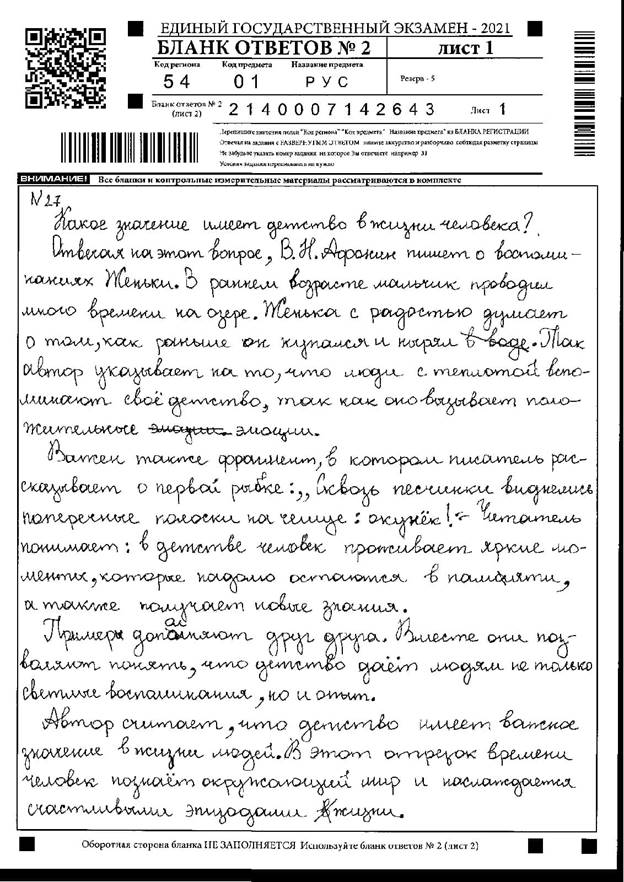 ЕДИНЫЙ ГОСУДАРСТВЕННЫЙ ЭКЗАМЕН - 2021
БЛАНК ОТВЕТОВ № 2
лист 1
Код региона Код предмета Название предмета
Резерв - 5
54 01 РУС
Бланк ответов № 2 (лист 2) 2140007142643 Лист 1
Перепишите значения полей "Код региона" "Код предмета" "Название предмета" из БЛАНКА РЕГИСТРАЦИИ
Отвечая на задания с РАЗВЕРНУТЫМ ОТВЕТОМ пишите аккуратно и разборчиво соблюдая разметку страницы
Не забудьте указать номер задания на которое Вы отвечаете например 31
Условия задания переписывать не нужно
ВНИМАНИЕ! Все бланки и контрольные измерительные материалы рассматриваются в комплекте
№27.
Какое значение имеет детство в жизни человека?
Отвечая на этот вопрос, В.Н.Афонин пишет о воспоми-
наниях Женьки. В раннем возрасте мальчик проводил
много времени на озере. Женька с радостью думает
о том, как раньше он купался и нырял в воде. Так
автор указывает на то, что люди с теплотой вспо-
минают своё детство, так как оно вызывает поло-
жительные эмоции.
Важен также фрагмент, в котором писатель рас-
сказывает о первой рыбке: ,,Сквозь песчинки виднелись
поперечные полоски на чешуе: окунёк!" Читатель
понимает: в детстве человек проживает яркие мо-
менты, которые надолго остаются в памяти,
а также получает новые знания.
Примеры дополняют друг друга. Вместе они поз-
воляют понять, что детство даёт людям не только
светлые воспоминания, но и опыт.
Автор считает, что детство имеет важное
значение в жизни людей. В этот отрезок времени
человек познаёт окружающий мир и наслаждается
счастливыми эпизодами жизни.
Оборотная сторона бланка НЕ ЗАПОЛНЯЕТСЯ Используйте бланк ответов № 2 (лист 2)